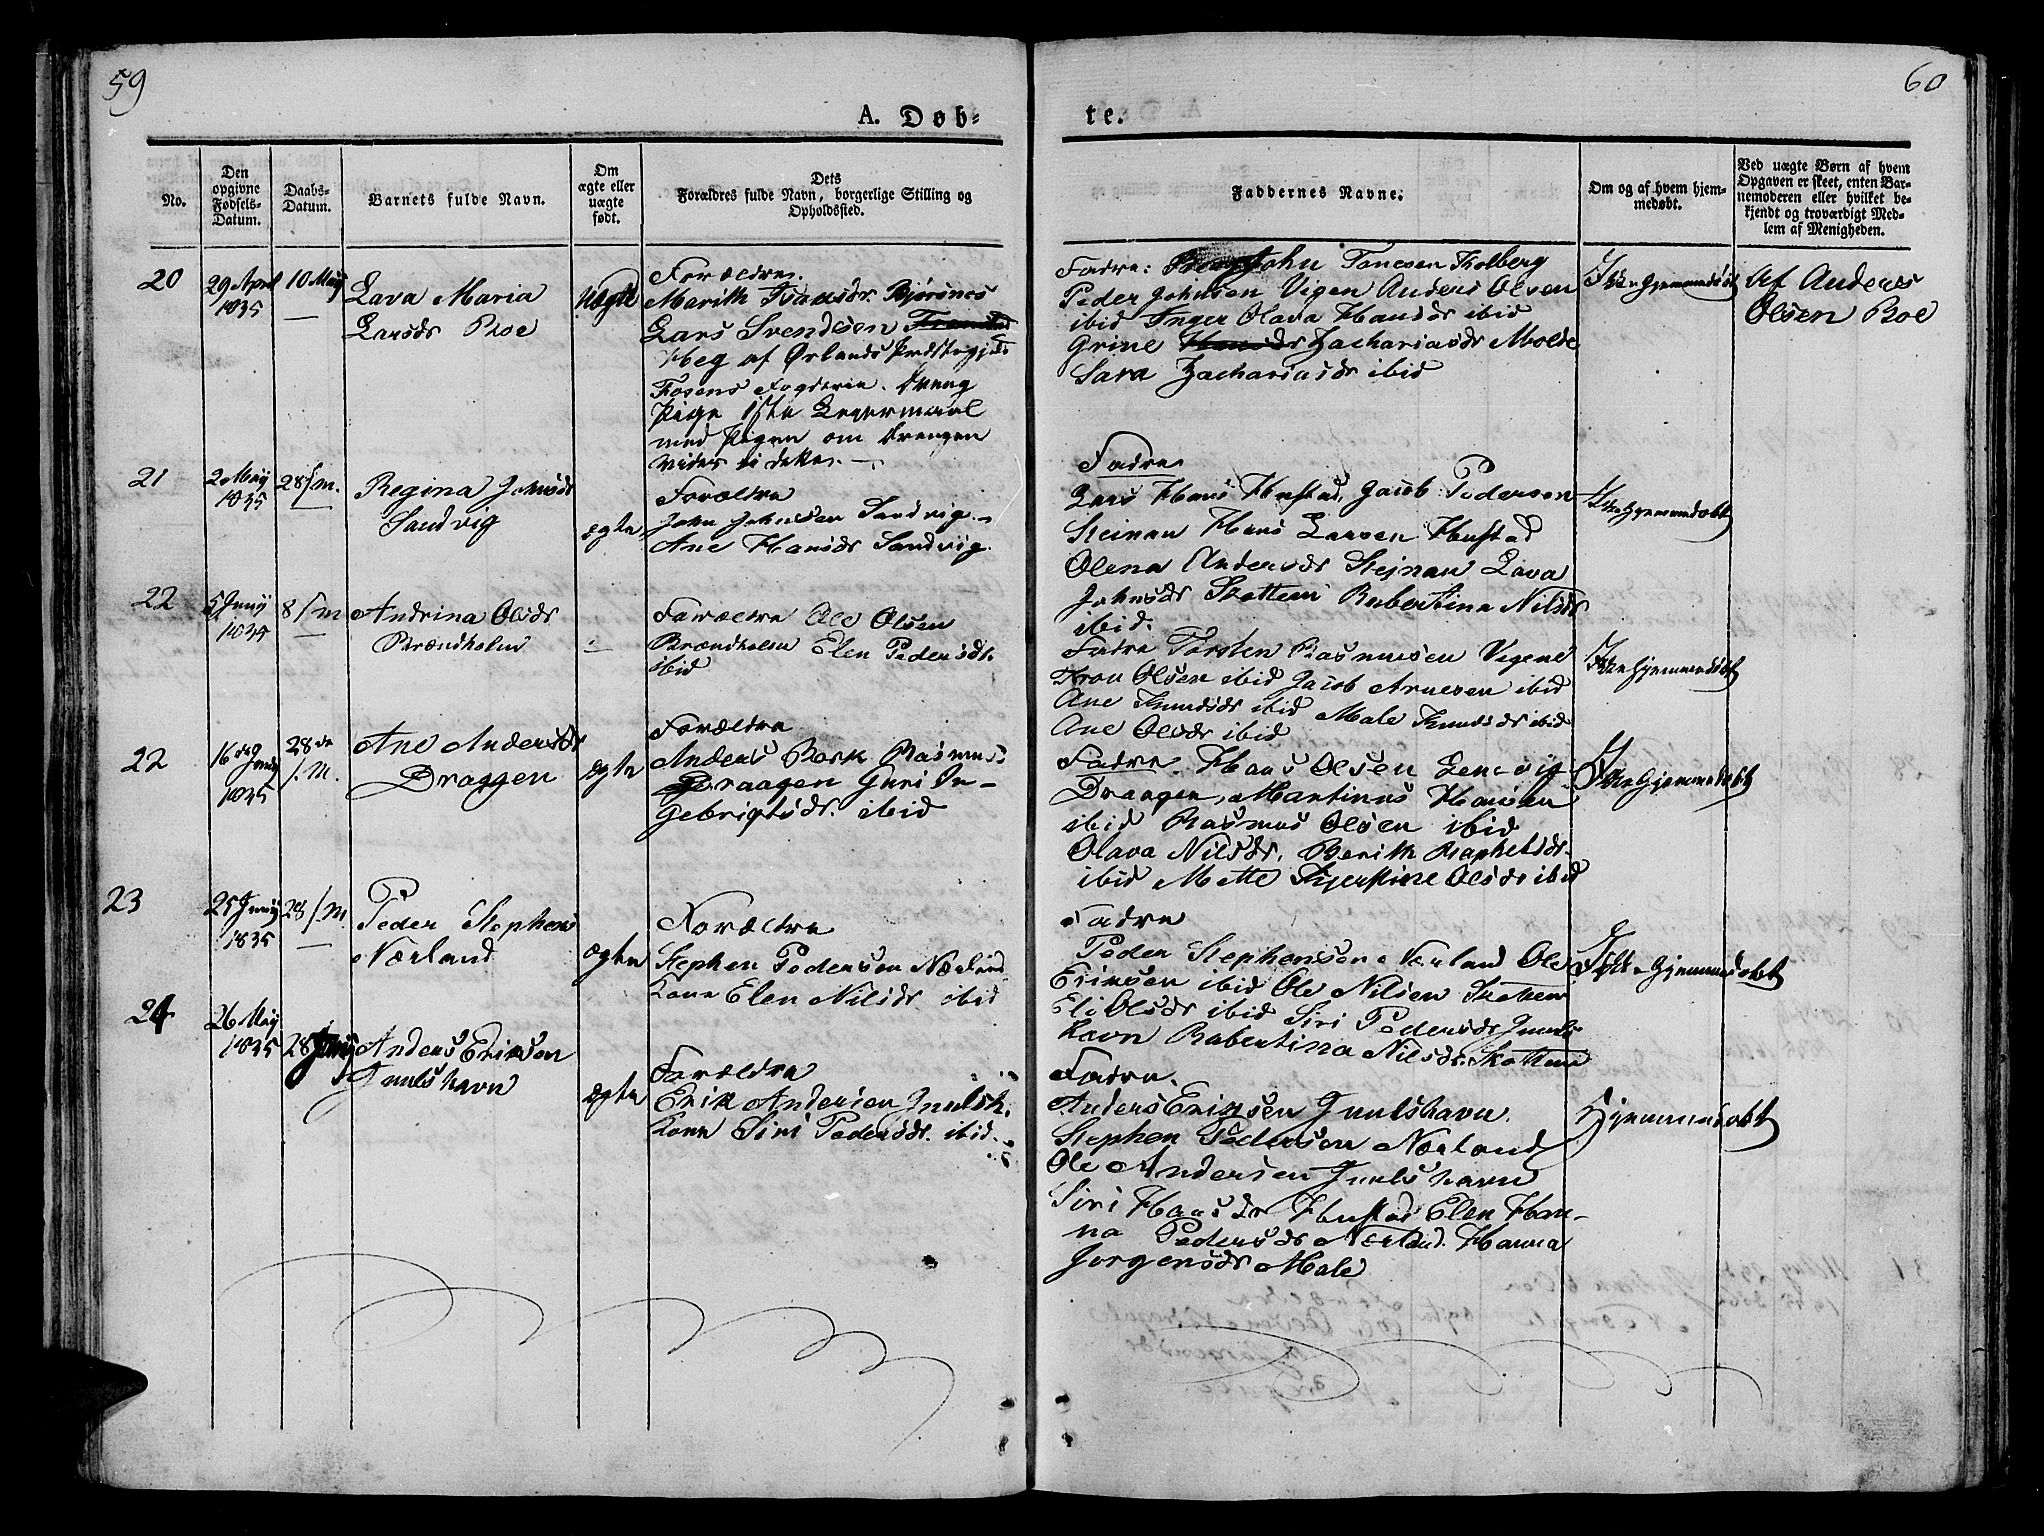 59
60
A. Døb-
te.
No.
Den opgivne Fødsels-Datum.
Daabs-Datum.
Barnets fulde Navn.
Om ægte eller uægte født.
Dets Forældres fulde Navn, borgerlige Stilling og Opholdssted.
Faddernes Navne.
Om og af hvem hjem-medøbt.
Ved uægte Børn af hvem Opgaven er skeet, enten Bar-nemoderen eller hvilket be-kjendt og troværdigt Med-lem af Menigheden.
20
29 April
1835
10 Maij
Lava Maria
Larsdr Roe
Uægte
Forældre.
Marith Isaksdr. Bjørsnes
Lars Svendsen
Heg af Ørlands Præstegjeld
Fosens Fogderie. Dreng
Pige 1ste Legermaal
med Pigen om Drengen
vides ei dette.
Fadre: John Tønesen Kolberg
Peder Johnsen Vigen Anders Olsen
ibid Inger Olava Hansdr ibid
Grine Zachariasdr Molde
Sara Zachariasdr ibid
Ikke Hjemmedøbt
Af Anders
Olsen Roe
21
2 Maij
1835
28 s. m.
Regina Johnsdr
Sandvig
egte
Forældre
John Johnsen Sandvig.
Ane Hansdr Sandvig.
Fadre
Lars Hans Hustad, Jacob Pedersen
Steinan Hans Larsen Hustad
Olena Andersdr Stejnan Lava
Johnsdr Skottem Rubertina Nilsdr
ibid.
Ikke Hjemmedøbt
22
5 Junij
1835
8 s. m
Andrina Olsdr
Brændholm
Forældre Ole Olsen
Brændholm Elen Pedersdr.
ibid
Fadre Torsten Rasmusen Vegene
Tron Olsen ibid Jacob Arnesen ibid
Ane Knudsdr ibid Male Knudsdr ibid
Ane Olsdr ibid
Ikke Hjemmedøbt
22
16 de Junij
1835
28 de
s. M.
Ane Andersdr
Draggen
egte
Forældre
Anders Berk Rasmus
Draagen Guri In-
gebrigtsdr. ibid
Fadre. Hans Olsen
Draagen, Martinus Hansen
ibid Rasmus Olsen ibid
Olava Nilsdr. Berith Raphelsdr.
ibid Mette Kjerstine Olsdr ibid
Ikke Hjemmedøbt
23
25 Junij
1835
28 s. M.
Peder Stephens
Nærland
egte
Forældre
Stephen Pedersen Nærland
Kone Elen Nilsdr ibid
Fadre
Peder Stephensen Nærland Ole
Eriksen ibid Ole Nilsen Skotten
Eli Olsdr ibid Siri Pedersdr Juuls
havn Rabertina Nilsdr. Skottem
Ikke Hjemmedøbt
24
26 Maij
1835
28 Junij
Anders Eriksen
Juulshavn
egte
Forældre
Erik Andersen Juulsh.
Kone Siri Pedersdr. ibid.
Fadre.
Anders Eriksen Juulshavn.
Stephen Pedersen Nærland
Ole Andersen Juulshavn
Siri Hansdr Hustad Elen Han-
na Pedersdr Nærland. Hanna
Jørgensdr Male
Hjemmedøbt